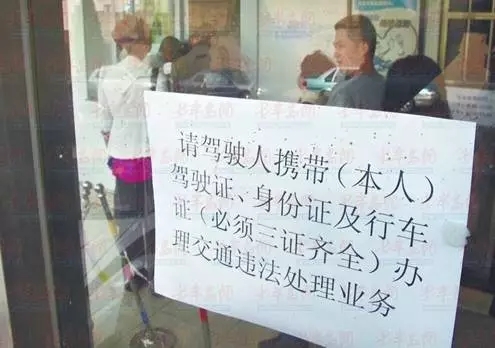 请驾驶人携带(本人)
驾驶证、身份证及行车
证(必须三证齐全)办
理交通违法处理业务